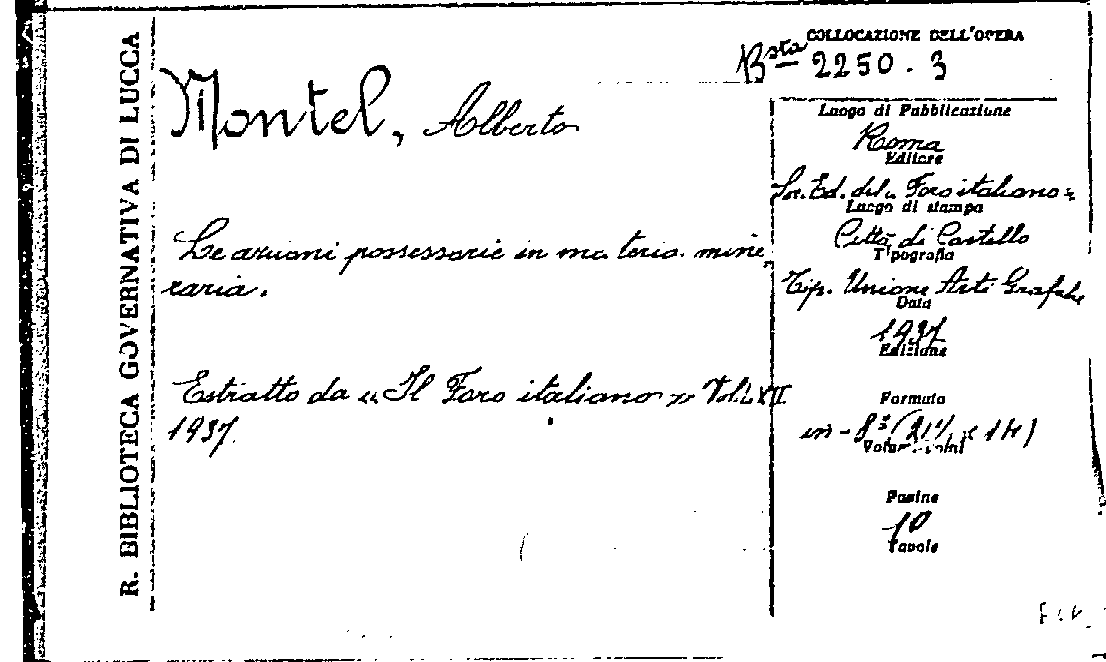 R. BIBLIOTECA GOVERNATIVA DI LUCCA
COLLOCAZIONE DELL'OPERA
Bsta 2250.3
Montel, Alberto
Le azioni possessorie in materia mine-
raria.
Estratto da « Il Foro italiano » Vol. LXII
1937.
Luogo di Pubblicazione
Roma
Editore
Soc. Ed. del « Foro italiano »
Luogo di stampa
Città di Castello
Tipografia
Tip. Unione Arti Grafiche
Data
1937
Edizione
Formato
in-8°
Pagine
10
Tavole